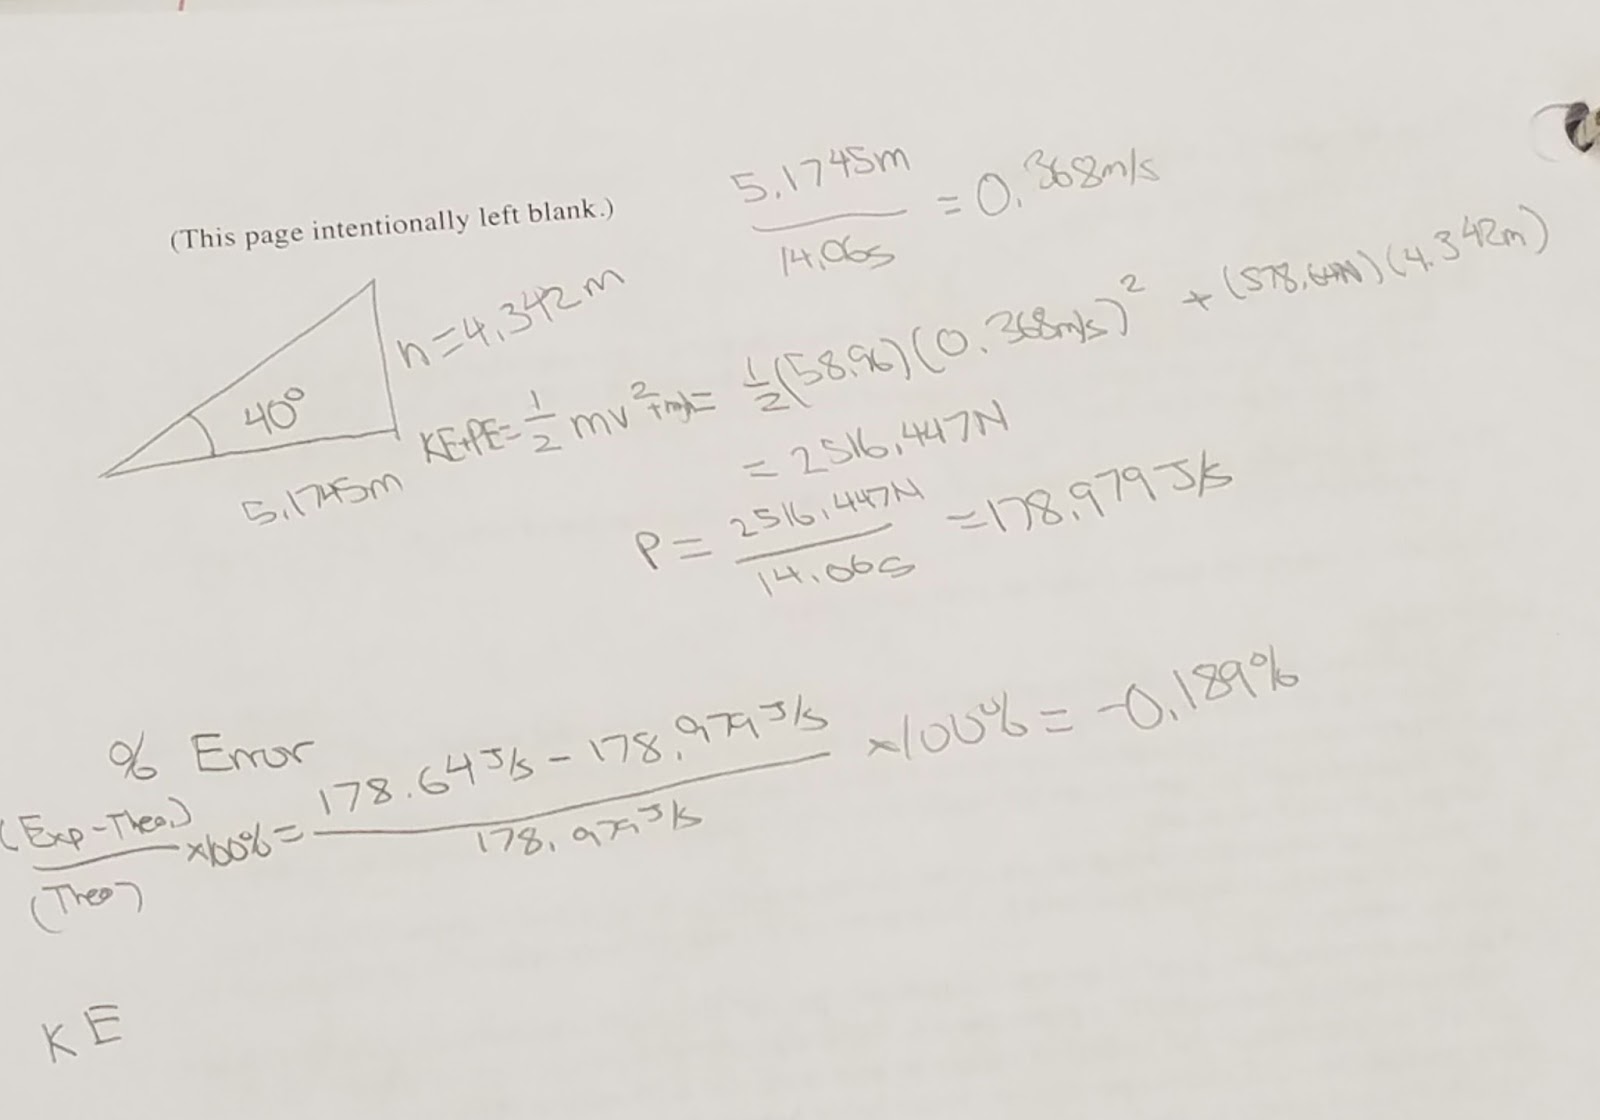 (This page intentionally left blank.)
5.1745m
14.06s
= 0.368m/s
h=4.342m
40°
5.1745m
KE+PE= 1/2 mv² + mgh = 1/2 (58.96)(0.368m/s)² + (578.64N)(4.342m)
= 2516.447N
P = 2516.447N
14.06s
=178.979 J/s
% Error
(Exp-Theo.)
(Theo)
x100% =
178.64 J/s - 178.979 J/s
178.979 J/s
x100% = -0.189%
KE